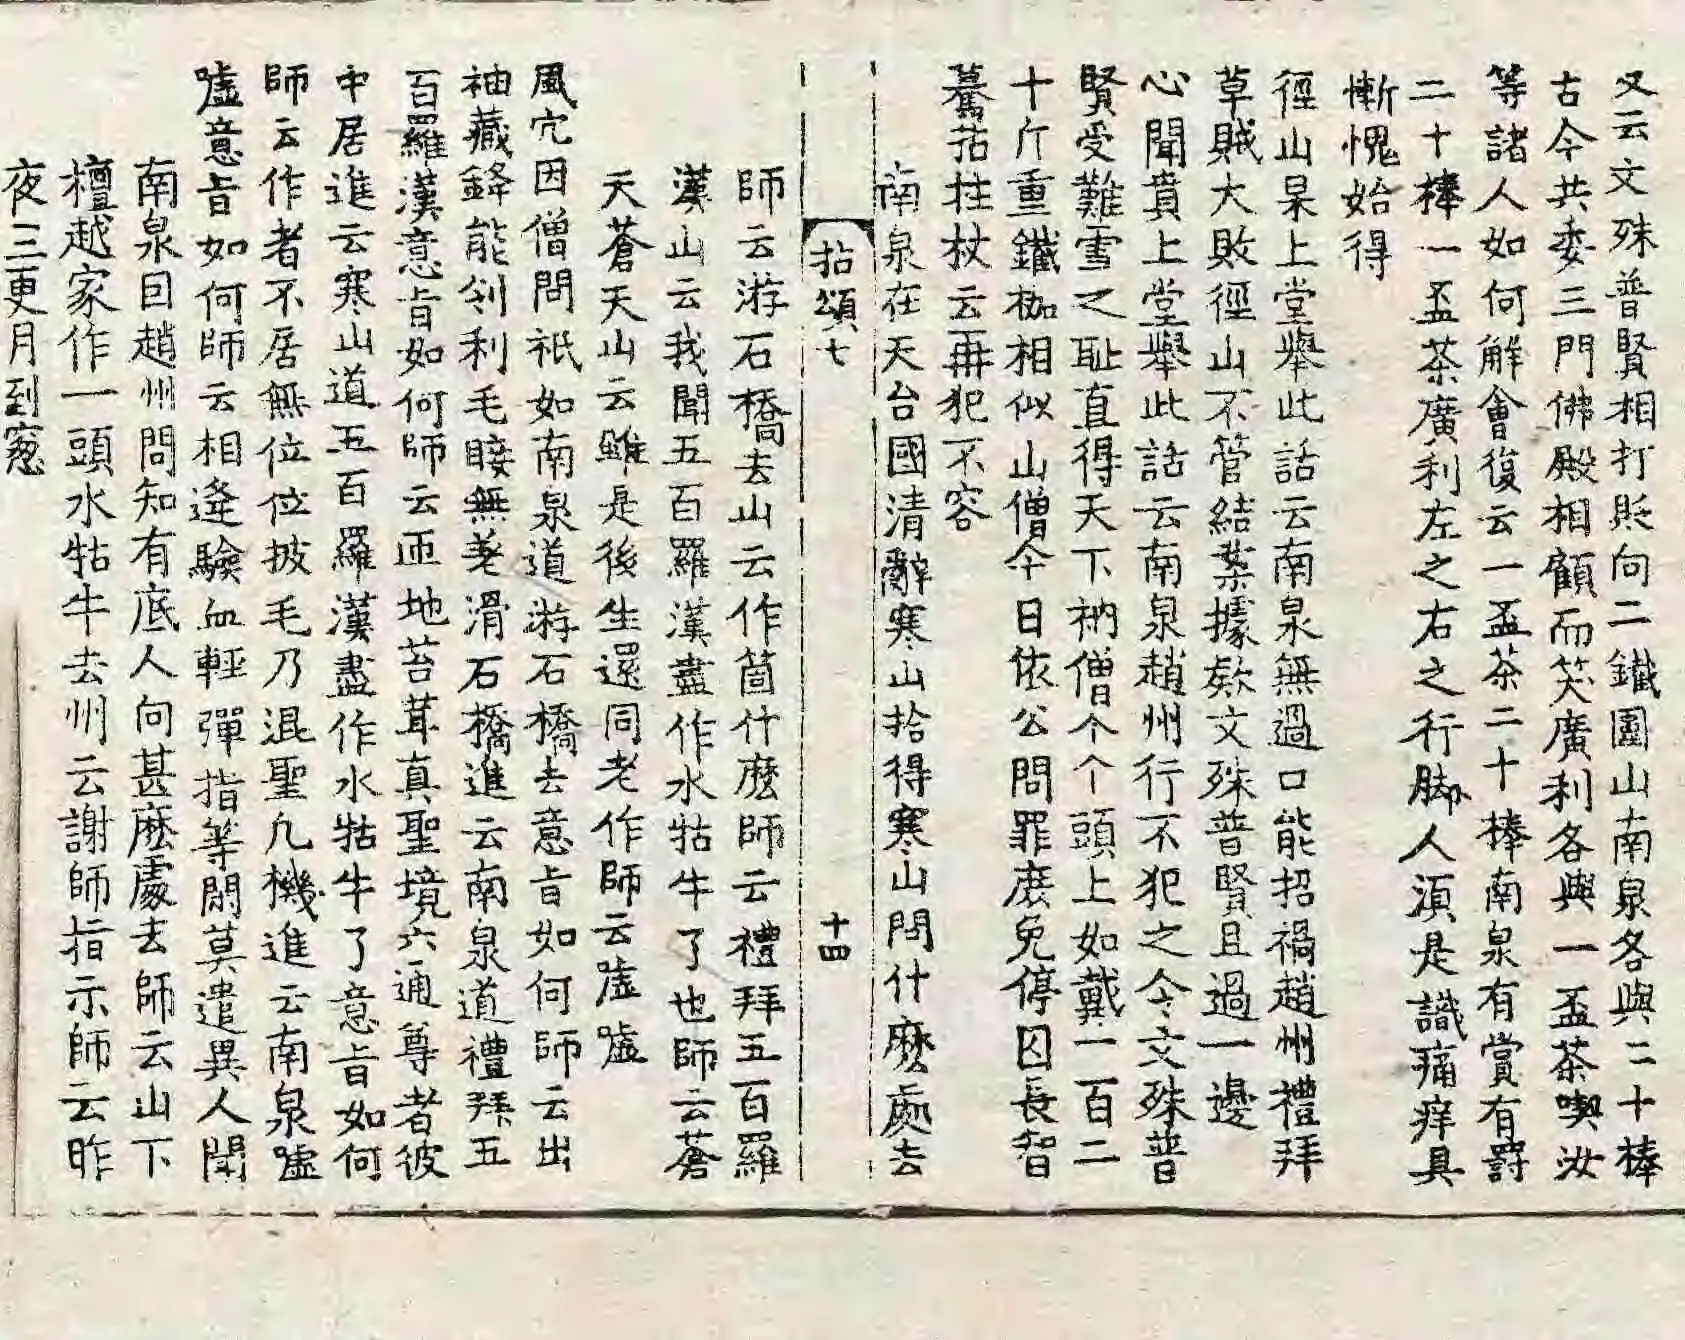 又云文殊普賢相打貶向二鐵圍山南泉各與二十棒
古今共委三門佛殿相顧而笑廣利各與一盃茶喫汝
等諸人如何解會復云一盃茶二十棒南泉有賞有罸
二十棒一盃茶廣利左之右之行脚人湏是識痛痒具
慚愧始得
徑山杲上堂舉此話云南泉無過口能招禍趙州禮拜
草賊大敗徑山不管結案據欵文殊普賢且過一邊
心聞賁上堂舉此話云南泉趙州行不犯之令文殊普
賢受難雪之恥直得天下衲僧个个頭上如戴一百二
十斤重鐵枷相似山僧今日依公問罪庶免停囚長智
驀拈拄杖云再犯不容
南泉在天台國清辭寒山拾得寒山問什麽處去
拈頌七
十四
師云游石橋去山云作箇什麽師云禮拜五百羅
漢山云我聞五百羅漢盡作水牯牛了也師云蒼
天蒼天山云雖是後生還同老作師云噓噓
風穴因僧問祇如南泉道游石橋去意旨如何師云出
袖藏鋒能刢利毛睫無差滑石橋進云南泉道禮拜五
百羅漢意旨如何師云匝地苔茸真聖境六通尊者彼
中居進云寒山道五百羅漢盡作水牯牛了意旨如何
師云作者不居無位位披毛乃混聖凡機進云南泉噓
噓意旨如何師云相逢驗血輕彈指等閑莫遣異人聞
南泉因趙州問知有底人向甚麽處去師云山下
檀越家作一頭水牯牛去州云謝師指示師云昨
夜三更月到窻